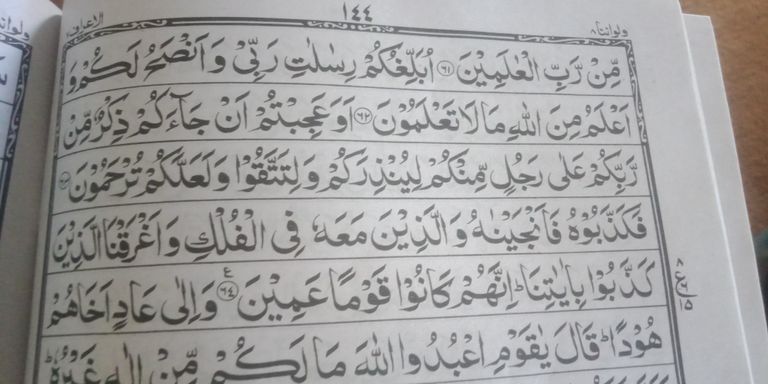 الاعراف ٧ ١٤٤ ولواننا ٨
مِّنْ رَّبِّ الْعٰلَمِيْنَ ﴿٦١﴾ اُبَلِّغُكُمْ رِسٰلٰتِ رَبِّىْ وَ اَنْصَحُ لَكُمْ وَ
اَعْلَمُ مِنَ اللّٰهِ مَا لَا تَعْلَمُوْنَ ﴿٦٢﴾ اَوَ عَجِبْتُمْ اَنْ جَآءَكُمْ ذِكْرٌ مِّنْ
رَّبِّكُمْ عَلٰى رَجُلٍ مِّنْكُمْ لِيُنْذِرَكُمْ وَ لِتَتَّقُوْا وَ لَعَلَّكُمْ تُرْحَمُوْنَ ﴿٦٣﴾
فَكَذَّبُوْهُ فَاَنْجَيْنٰهُ وَ الَّذِيْنَ مَعَهٗ فِى الْفُلْكِ وَ اَغْرَقْنَا الَّذِيْنَ
كَذَّبُوْا بِاٰيٰتِنَا ؕ اِنَّهُمْ كَانُوْا قَوْمًا عَمِيْنَ ﴿٦٤﴾ ع وَ اِلٰى عَادٍ اَخَاهُمْ
هُوْدًا ؕ قَالَ يٰقَوْمِ اعْبُدُوا اللّٰهَ مَا لَكُمْ مِّنْ اِلٰهٍ غَيْرُهٗ ؕ